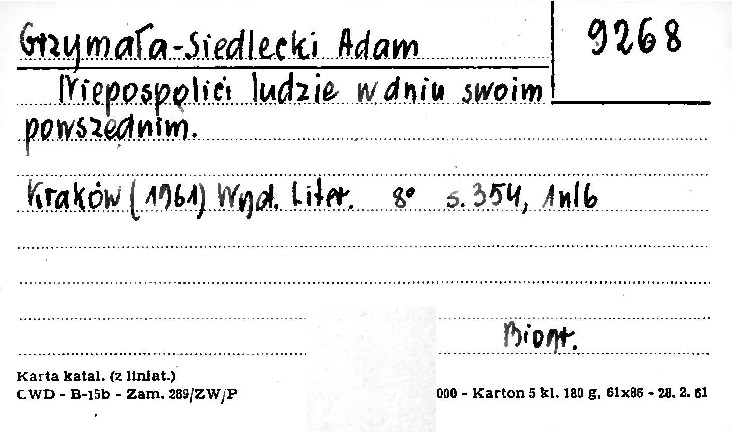 Grzymała-Siedlecki Adam
9268
Niepospolici ludzie w dniu swoim
powszednim.
Kraków (1961) Wyd. Liter. 8° s. 354, 1nlb
Biogr.
Karta katal. (z liniat.)
CWD - B-15b - Zam. 289/ZW/P
000 - Karton 5 kl. 180 g, 61x86 - 28. 2. 61